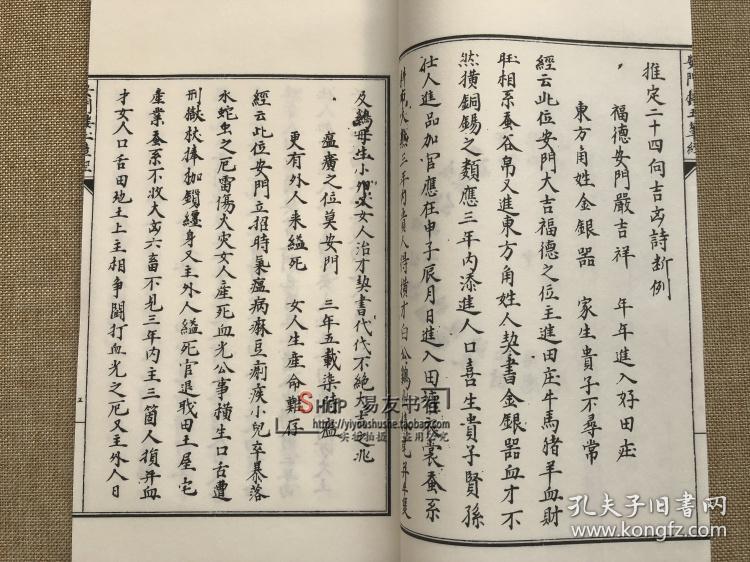 推定二十四向吉凶詩断例
福德安門嚴吉祥 年年進入好田庄
東方角姓金銀器 家生貴子不尋常
經云此位安門大吉福德之位主進田庄牛馬猪羊血財
旺相系蚕谷帛又進東方角姓人契書金銀器血才不
然横銅錫之類應三年内添進人口喜生貴子賢孫
仕人進品加官應在申子辰月日進入田 衣裳蚕系
大熟三年内 人得横才白公鷄
及鷄母生小 女人治才契書代代不絶大吉之兆
瘟瘽之位莫安門 三年五載染時瘟
更有外人来縊死 女人生産命難存
經云此位安門立招時氣瘟病麻豆痢疾小兒卒暴落
水蛇虫之厄雷傷火灾女人産死血光公事横生口舌遭
刑獄杖捧枷鎖纏身又主外人縊死官退戝田土屋宅
産業蚕系不收大凶六畜不見三年内主三箇人損年血
才女人口舌田地土上主相争鬪打血光之厄又主外人日
五
SHOP 易友书社
http://yiyoushushe.kongfz.com
实物拍摄 盗用必究
孔夫子旧书网
www.kongfz.com